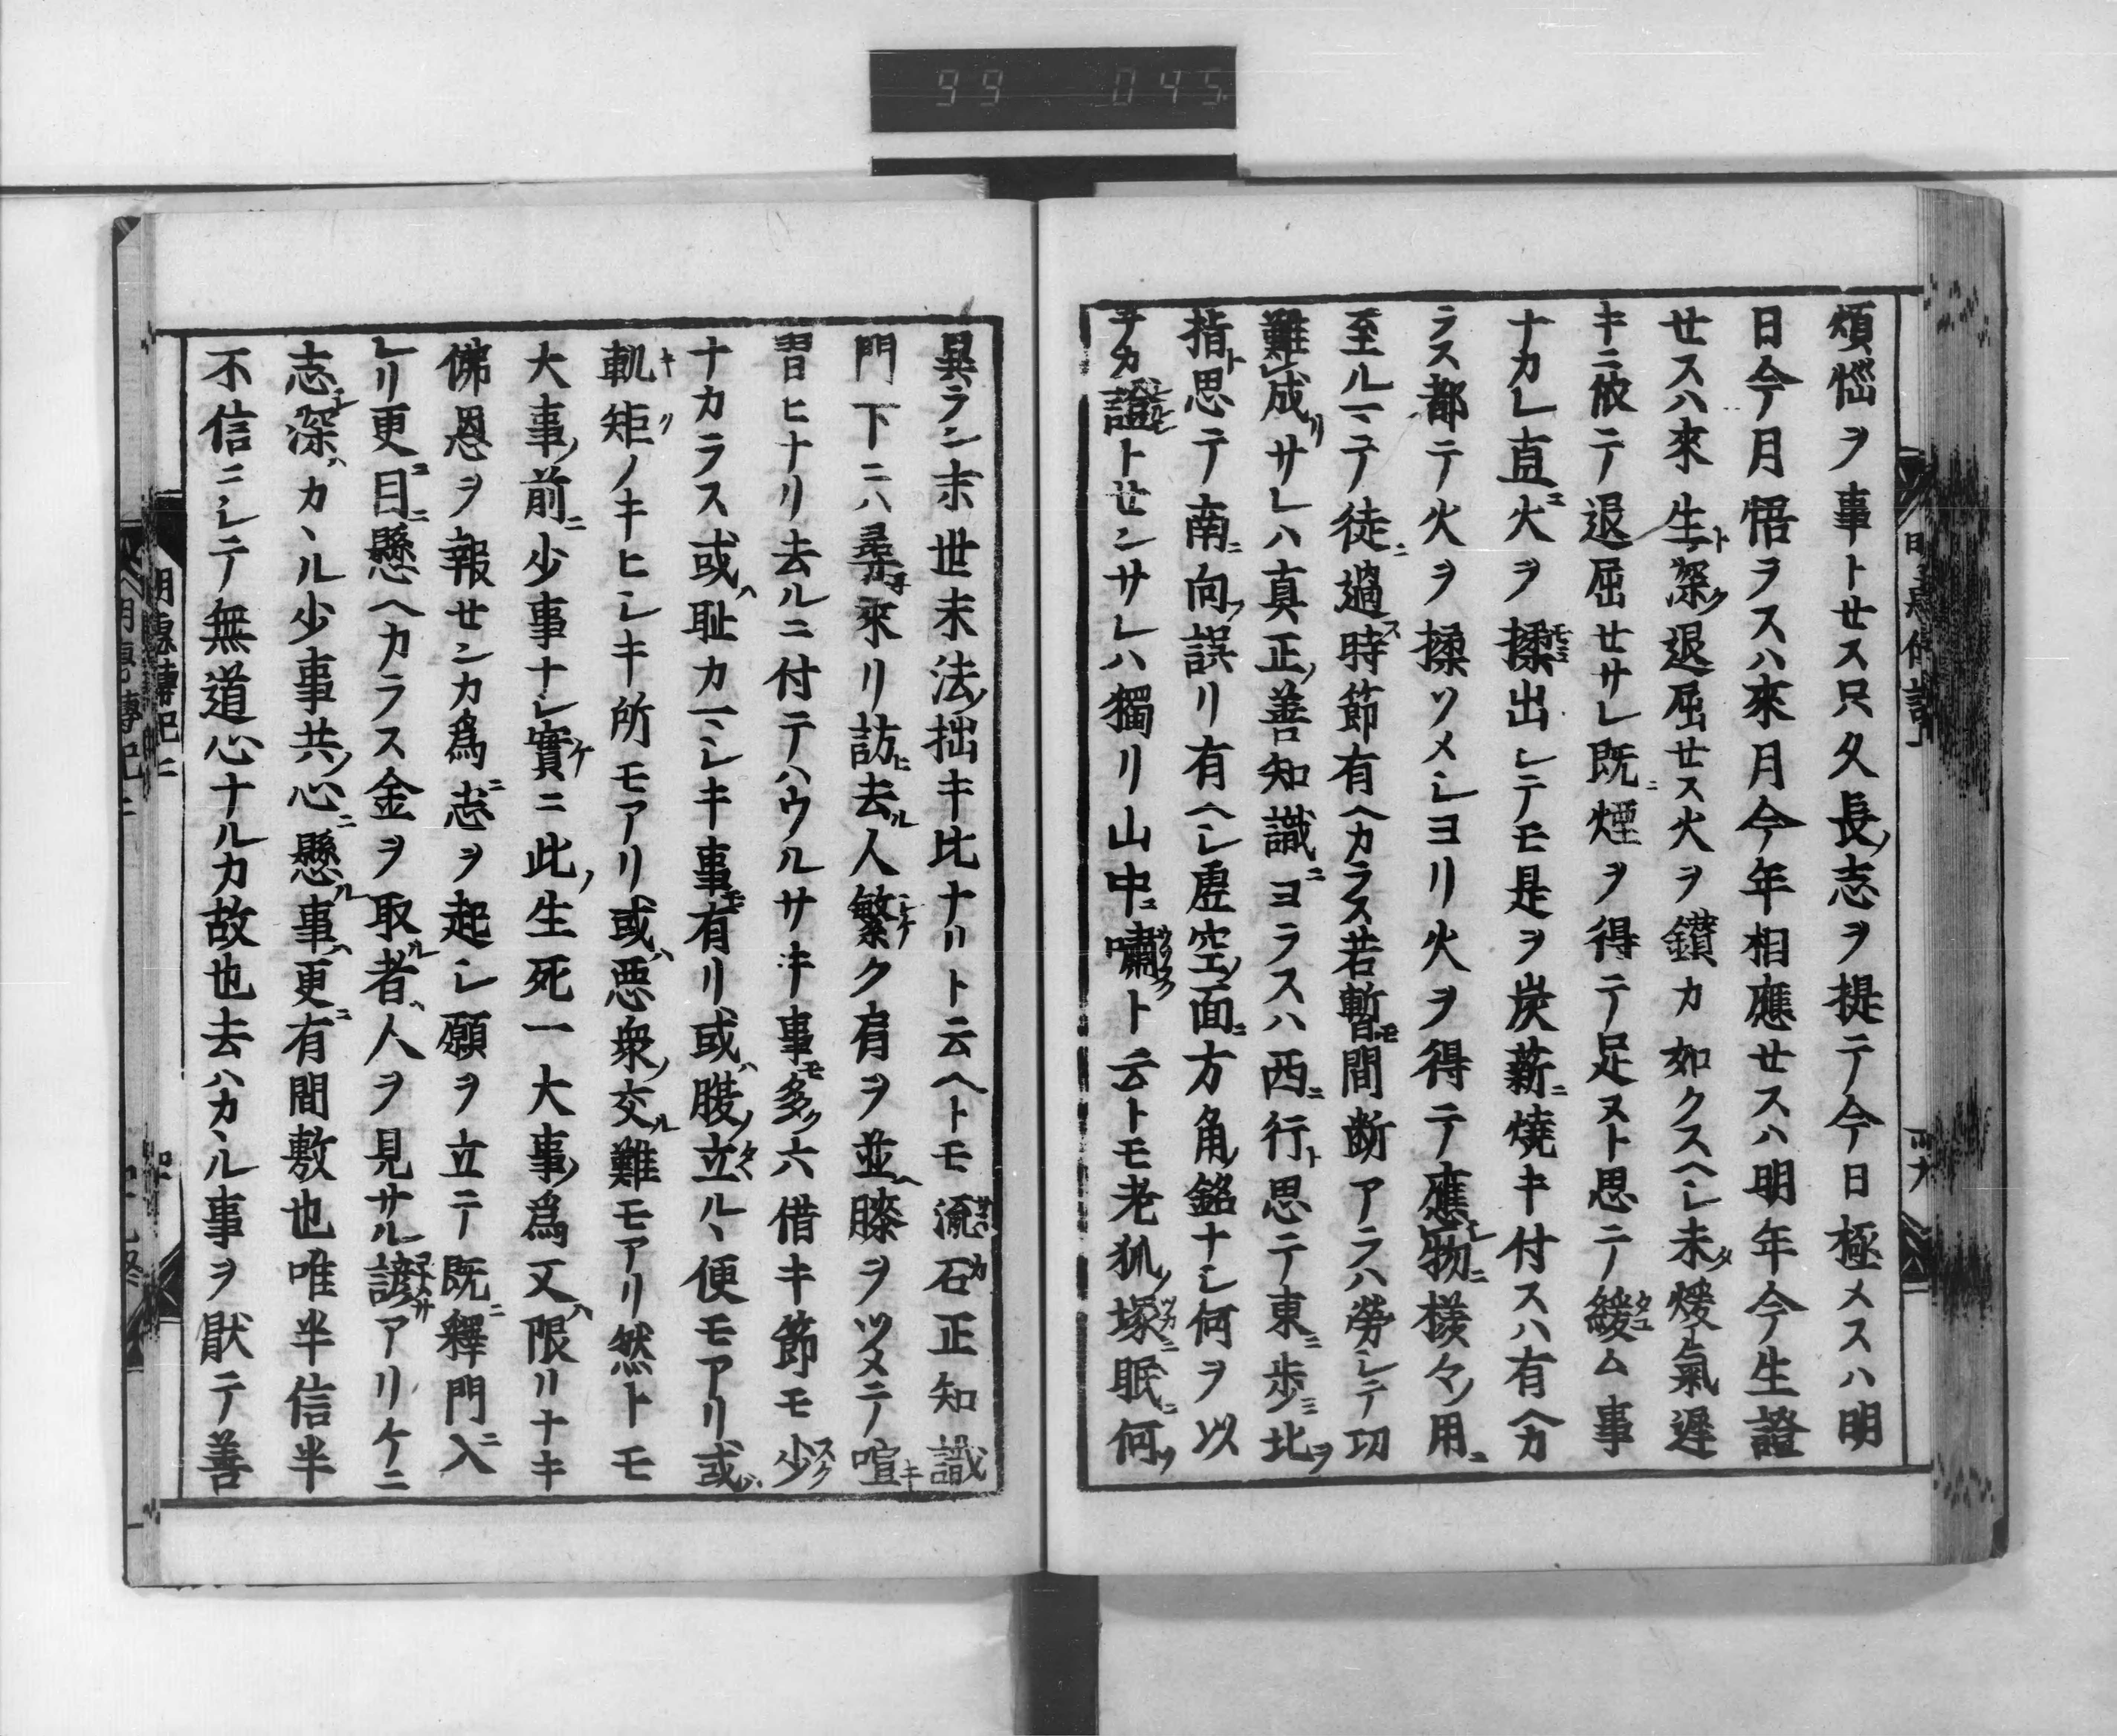 99 045
煩惱ヲ事トセス只久長ノ志ヲ提テ今日極メスハ明
日今月悟ラスハ來月今年相應セスハ明年今生證
セスハ來生ト深ク退屈セス火ヲ鑚カ如クスヘシ未タ煖氣遲
キニ依テ退屈セサレ既ニ煙ヲ得テ足ヌト思テ緩ム事
ナカレ直ニ火ヲ揉出シテモ是ヲ炭薪ニ燒キ付スハ有ヘカ
ラス都テ火ヲ揉ソメシヨリ火ヲ得テ應物ニ様々ノ用ニ
至ルマテ徒ニ過ス時節有ヘカラス若暫モ間斷アラハ勞シテ功
難成リサレハ真正ノ善知識ニヨラスハ西ニ行ト思テ東ニ歩ミ北ヲ
指ト思テ南ニ向フ誤リ有ヘシ虛空ノ面ニ方角ノ銘ナシ何ヲ以
テカ證トセンサレハ獨リ山中ニ嘯ト云トモ老狐ノ塚ニ眠ニ何ソ
異ラン末世末法ノ拙キ比ナリト云ヘトモ流石正知識
門下ニハ尋來リ訪ニ去ル人繁ク肩ヲ並ヘ膝ヲツメテ喧キ
習ヒナリ去ルニ付テハウルサキ事モ多ク六借キ節モ少
ナカラス或ハ耻カマシキ事モ有リ或ハ腹ノ立ルヽ便モアリ或ハ
軌矩ノキヒシキ所モアリ或ハ悪衆ノ交ル難モアリ然トモ
大事ノ前ニ少事ナシ實ニ此ノ生死一大事ノ爲ハ又限リナキ
佛恩ヲ報センカ爲ニ志ヲ起シ願ヲ立テ既ニ釋門ニ入
レリ更ニ目ニ懸ヘカラス金ヲ取ル者ハ人ヲ見サル諺アリケニ
志シ深ハカヽル少事共ノ心ニ懸ル事ハ更ニ有間敷也唯半信半
不信ニシテ無道心ナルカ故也去ハカヽル事ヲ厭テ善
明惠傳記二